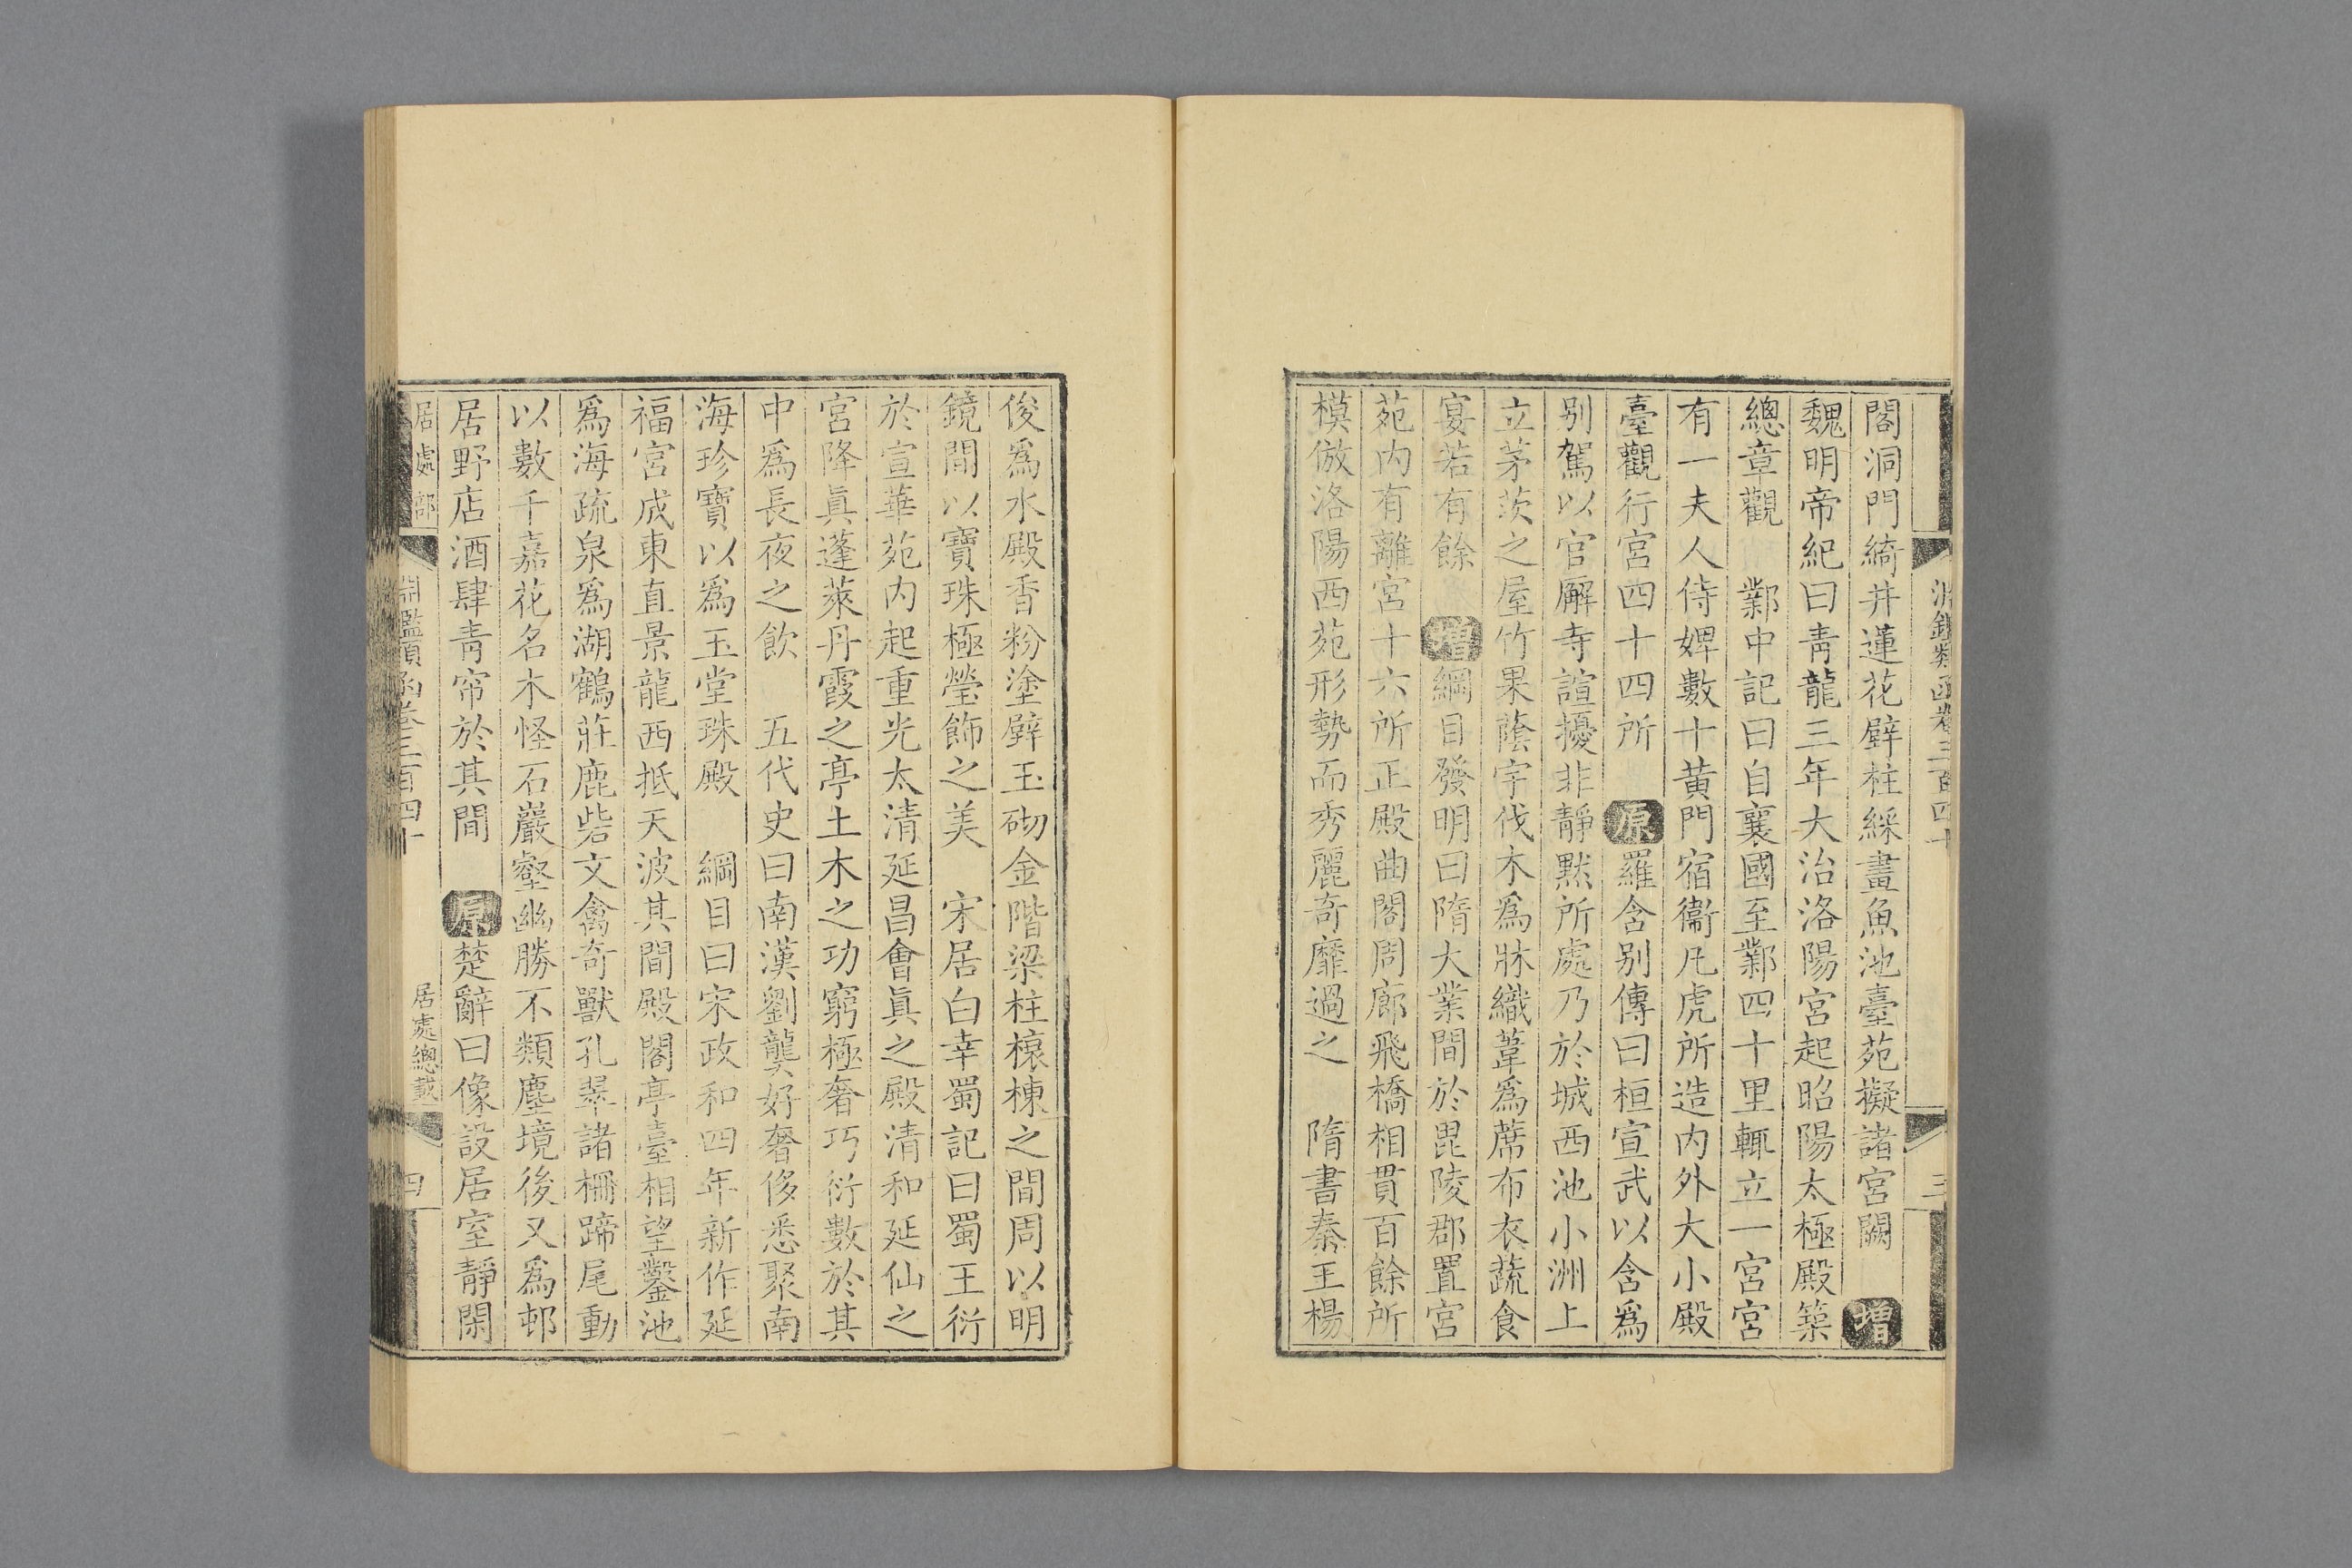 淵鑑類函卷三百四十
三
閣洞門綺井蓮花壁柱綵畫魚池臺苑擬諸宮闕 增
魏明帝紀曰靑龍三年大治洛陽宮起昭陽太極殿築
總章觀 鄴中記曰自襄國至鄴四十里輒立一宮宮
有一夫人侍婢數十黃門宿衞凡虎所造內外大小殿
臺觀行宮四十四所 原羅含别傳曰桓宣武以含爲
别駕以官廨寺諠擾非靜默所處乃於城西池小洲上
立茅茨之屋竹果蔭宇伐木爲牀織葦爲蓆布衣蔬食
宴若有餘 增綱目發明曰隋大業間於毘陵郡置宮
苑內有離宮十六所正殿曲閣周廊飛橋相貫百餘所
模倣洛陽西苑形勢而秀麗奇靡過之 隋書秦王楊
俊爲水殿香粉塗壁玉砌金階梁柱榱棟之間周以明
鏡間以寶珠極瑩飾之美 宋居白幸蜀記曰蜀王衍
於宣華苑內起重光太清延昌會眞之殿清和延仙之
宮降眞蓬萊丹霞之亭土木之功窮極奢巧衍數於其
中爲長夜之飲 五代史曰南漢劉龑好奢侈悉聚南
海珍寶以爲玉堂珠殿 綱目曰宋政和四年新作延
福宮成東直景龍西抵天波其間殿閣亭臺相望鑿池
爲海疏泉爲湖鶴莊鹿砦文禽奇獸孔翠諸柵蹄尾動
以數千嘉花名木怪石巖壑幽勝不類塵境後又爲邨
居野店酒肆靑帘於其間 原楚辭曰像設居室靜閑
居處部
淵鑑類函卷三百四十
居處總載一
四